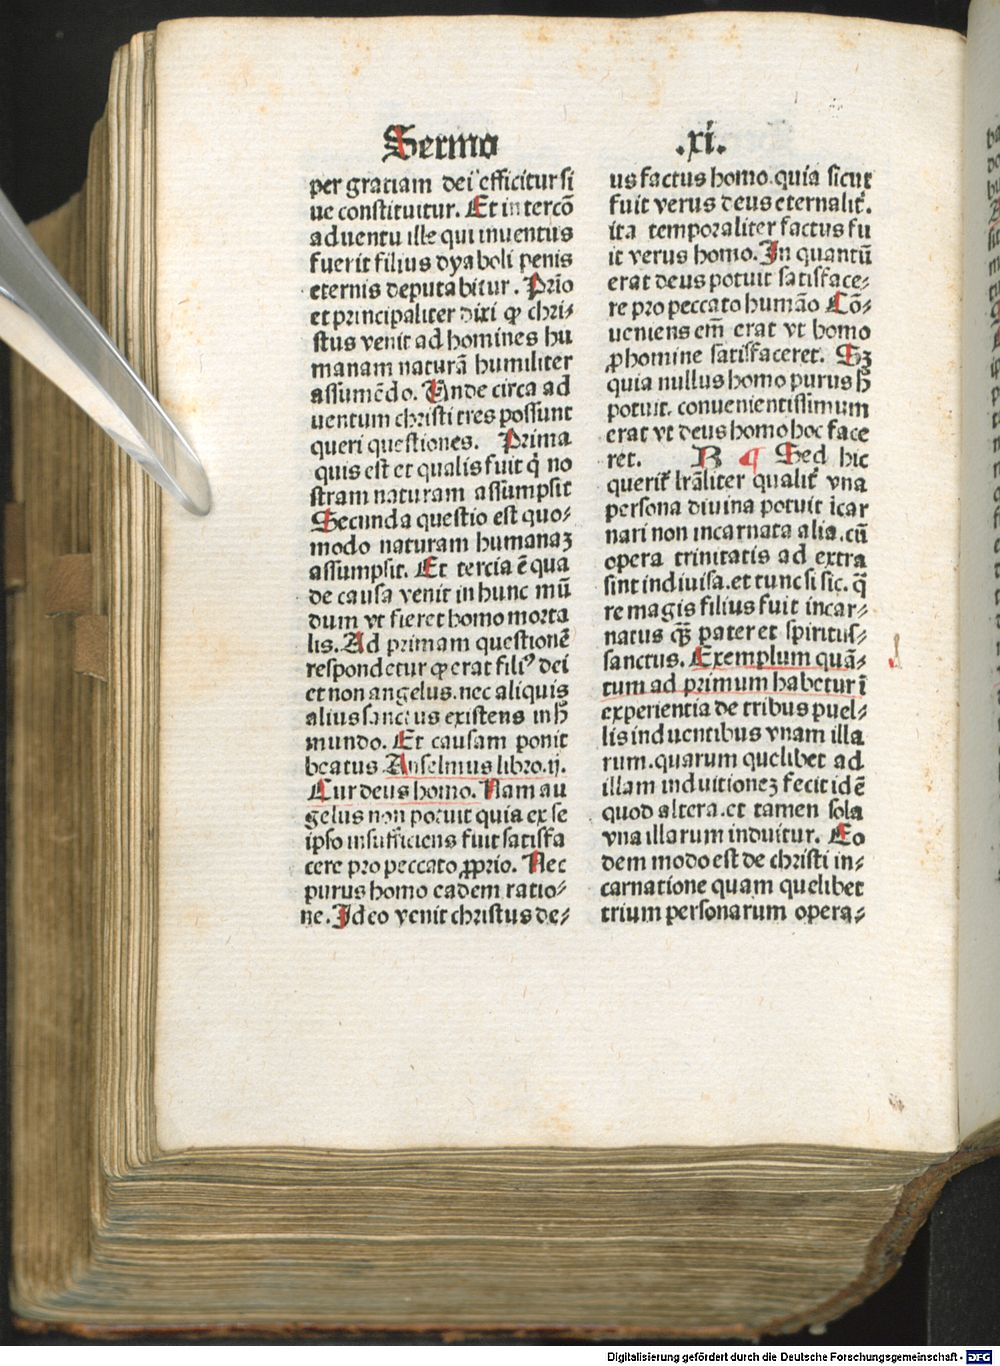 Sermo .xi.
per gratiam dei efficitur si
ue constituitur. Et in tercō
aduentu ille qui inuentus
fuerit filius dyaboli penis
eternis deputabitur. Prīo
et principaliter dixi ꝙ chri-
stus venit ad homines hu
manam naturā humiliter
assumēdo. Unde circa ad
uentum christi tres possunt
queri questiones. Prima
quis est et qualis fuit q̇ no
stram naturam assumpsit
Secunda questio est quo⸗
modo naturam humanaꝫ
assumpsit. Et tercia ē qua
de causa venit in hunc mū
dum vt fieret homo morta
lis. Ad primam questionē
respondetur ꝙ erat filiꝰ dei
et non angelus. nec aliquis
alius sanctus existens in ħ
mundo. Et causam ponit
beatus Anselmus libro.ij.
Cur deus homo. Nam an
gelus non potuit quia ex se
ipso insufficiens fuit satisfa
cere pro peccato ꝓprio. Nec
purus homo eadem ratio⸗
ne. Ideo venit christus de⸗
us factus homo. quia sicut
fuit verus deus eternalit᷑.
ita temporaliter factus fu
it verus homo. In quantū
erat deus potuit satisface⸗
re pro peccato humāo Cō⸗
ueniens em̄ erat vt homo
ꝓ homine satisfaceret. Sꝫ
quia nullus homo purus ħ
potuit. conuenientissimum
erat vt deus homo hoc face
ret. B ¶ Sed hic
querit᷑ lr̄aliter qualit᷑ vna
persona diuina potuit īcar
nari non incarnata alia. cū
opera trinitatis ad extra
sint indiuisa. et tunc si sic. q̄
re magis filius fuit incar⸗
natus qꝫ̄ pater et spiritus⸗
sanctus. Exemplum quā⸗
tum ad primum habetur ī
experientia de tribus puel⸗
lis induentibus vnam illa
rum. quarum quelibet ad
illam induitionez fecit idē
quod altera. et tamen sola
vna illarum induitur. Eo
dem modo est de christi in⸗
carnatione quam quelibet
trium personarum opera⸗
Digitalisierung gefördert durch die Deutsche Forschungsgemeinschaft - DFG